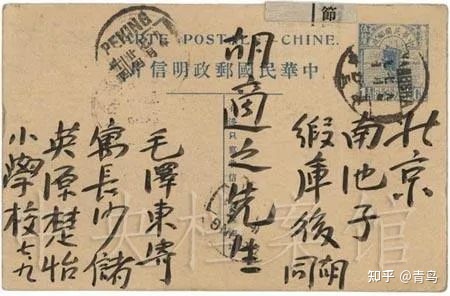 節
CARTE POSTALE CHINE.
中華民國郵政明信片
PEKING
北京
南池子
緞庫後胡同
胡適之先生
毛澤東寄
寓長沙儲
英源楚怡
小學校 七、九
央档案馆
知乎 @青鸟